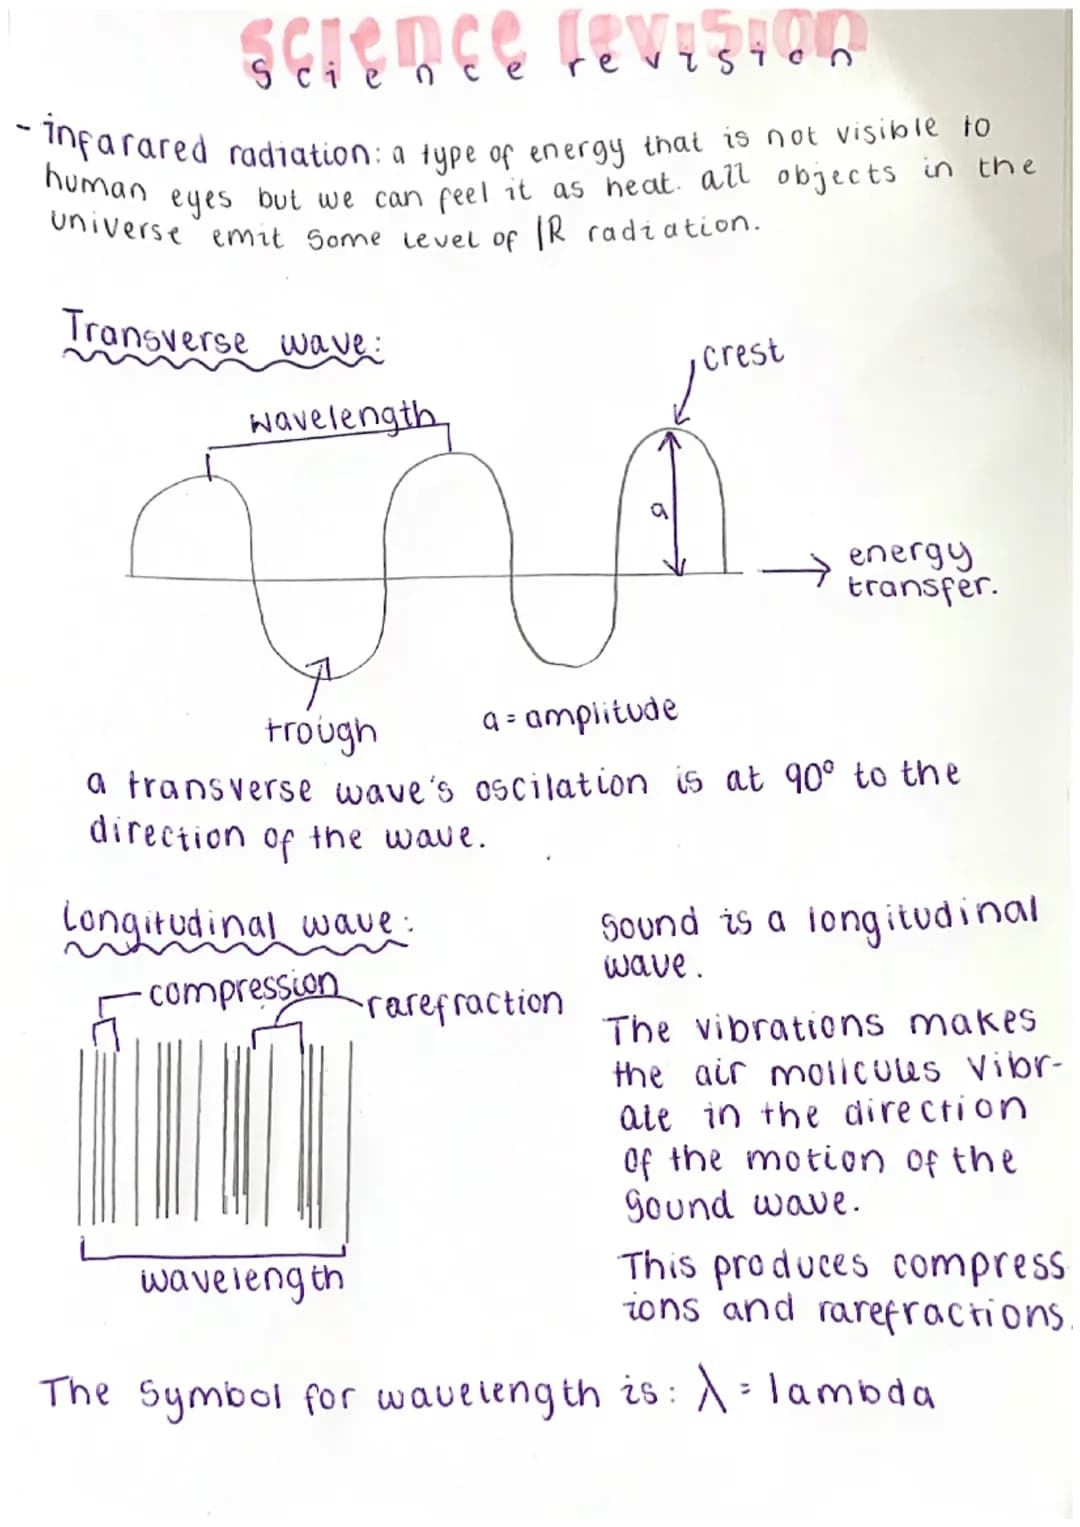 science revision
science revision
- infarared radiation: a type of energy that is not visible to
human eyes but we can feel it as heat. all objects in the
universe emit some level of IR radiation.
Transverse wave:
crest
wavelength
a
energy
transfer.
trough
a = amplitude
a transverse wave's oscilation is at 90° to the
direction of the wave.
Longitudinal wave:
compression
rarefraction
wavelength
Sound is a longitudinal
wave.
The vibrations makes
the air mollcules vibr-
ate in the direction
of the motion of the
sound wave.
This produces compress
ions and rarefractions.
The symbol for wavelength is: λ = lambda